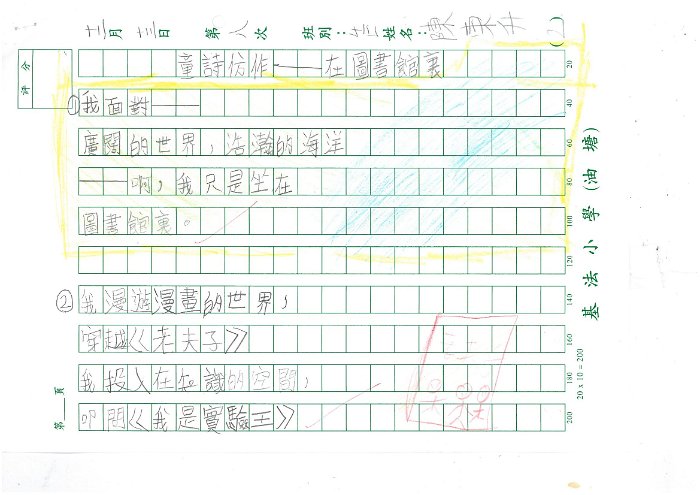 十二月 十三日 第八次 班別： 姓名：陳東升 (2)
評分
童詩仿作——在圖書館裏 20
①我面對—— 40
廣闊的世界，浩瀚的海洋 60
——啊，我只是坐在 80
圖書館裏。 100
120
②我漫遊漫畫的世界， 140
穿越《老夫子》 160
我投入在知識的空間， 180
叩問《我是實驗王》 200
第__頁
20 x 10 = 200
基法小學（油塘）